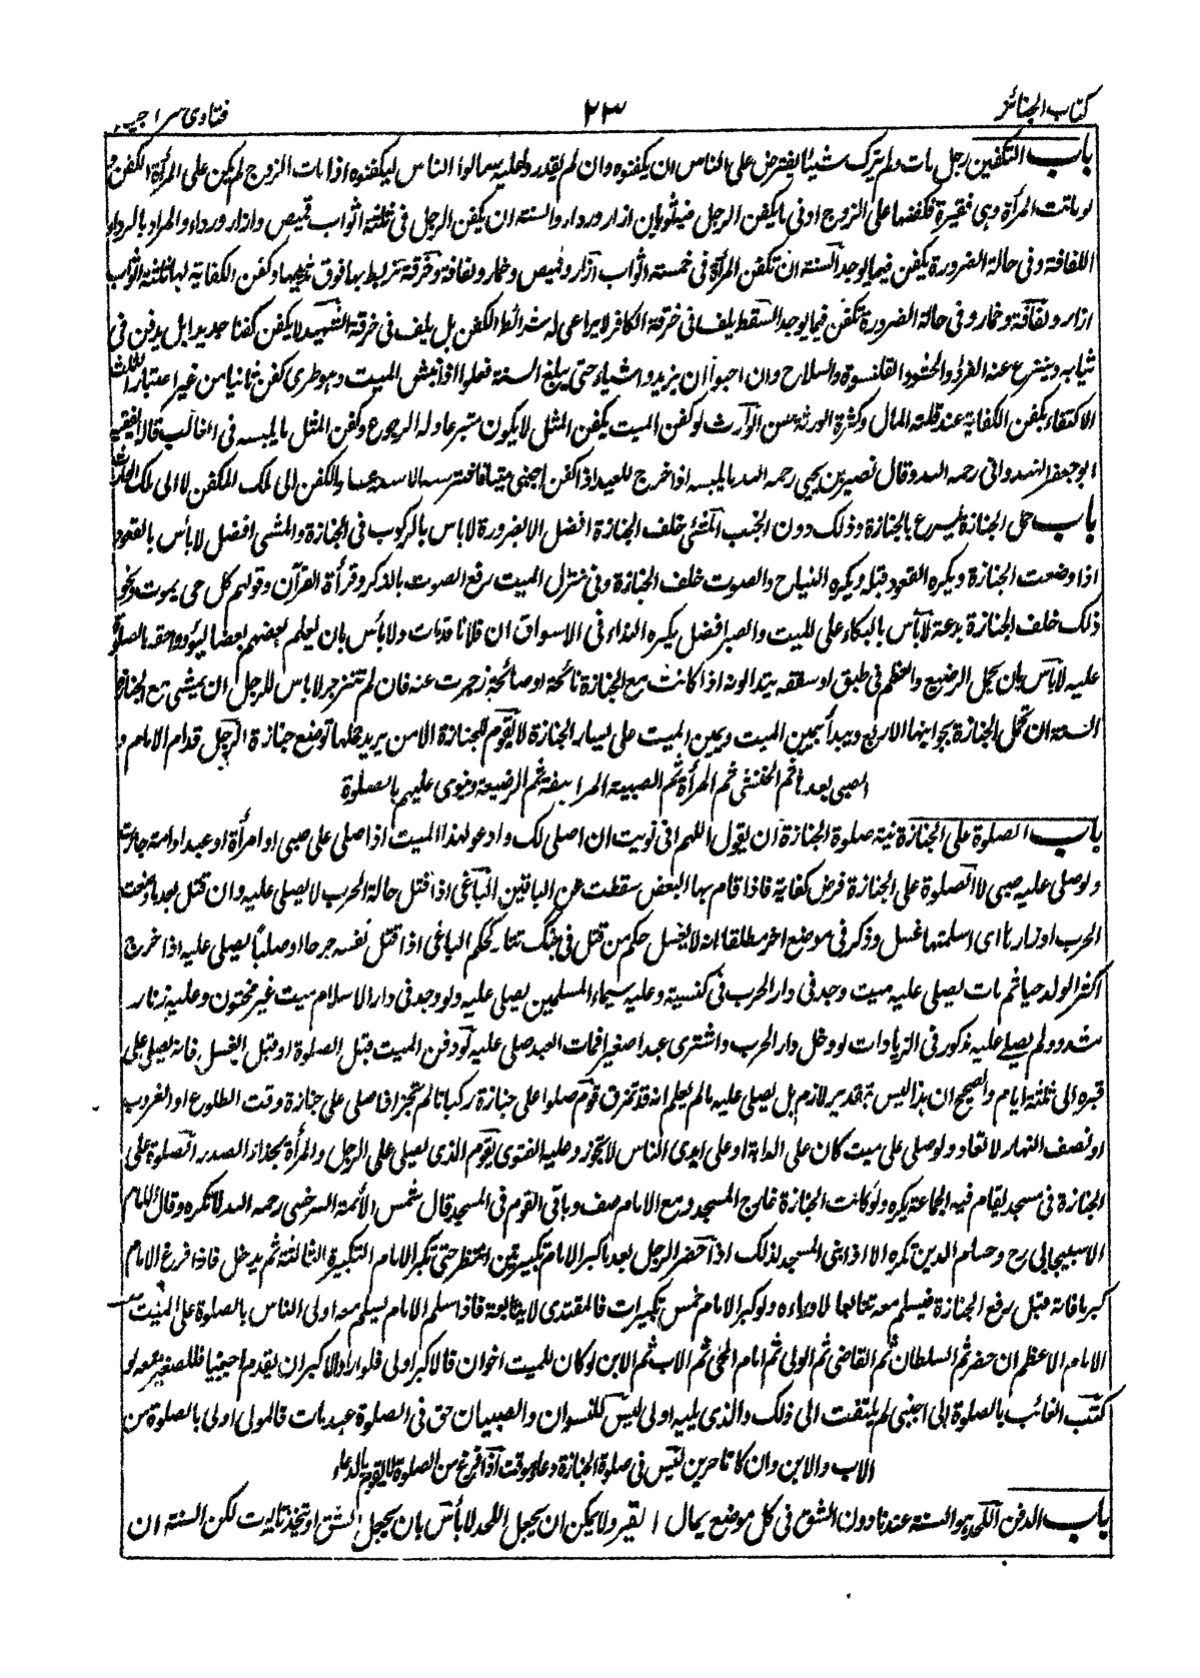 كتاب الجنائز ٢٣ فتاوى سراجيه
باب التكفين رجل مات ولم يترك شيئا يفترض على الناس ان يكفنوه وان لم يقدر وا عليه سالوا الناس ليكفنوه اذا مات الزوج لم يكن على المرأة الكفن
لو ماتت المرأة وهى فقيرة فكفنها على الزوج ادنى ما يكفن الرجل فيه ثوبان ازار ورداء والسنة ان يكفن الرجل فى ثلثة اثواب قميص وازار ورداء والمراد بالرداء
اللفافة وفى حالة الضرورة يكفن فيما يوجد السنة ان تكفن المرأة فى خمسة اثواب ازار وقميص وخمار ولفافة وخرقة تربط بها فوق ثدييها وكفن الكفاية لها ثلثة اثواب
ازار ولفافة وخمار وفى حالة الضرورة تكفن فيما يوجد السقط يلف فى خرقة الكافر لا يراعى له شرائط الكفن بل يلف فى خرقة الشهيد لا يكفن كفنا جديدا بل يدفن فى
ثيابه وينزع عنه الفرو والحشو والقلنسوة والسلاح وان احبوا ان يزيدوا شياء حتى يبلغ السنة فعلوا اذا نبش الميت وهو طرى كفن ثانيا من غير اعتبار الثلث
الاكتفاء بكفن الكفاية عند قلة المال وكثرة الورثة حسن الوارث لو كفن الميت بكفن المثل لا يكون متبرعا وله الرجوع وكفن المثل ما يلبسه فى الغالب قال الفقيه
ابو جعفر الهندوانى رحمه الله وقال نصير بن يحيى رحمه الله ما يلبسه اذا خرج للعيد اذا كفن اجنبى ميتا فافترسه الاسد عاد الكفن الى ملك المكفن لا الى ملك الوارث
باب حمل الجنازة يسرع بالجنازة وذلك دون الخبب المشى خلف الجنازة افضل الا لضرورة لا باس بالركوب فى الجنازة والمشى افضل لا بأس بالقعود
اذا وضعت الجنازة ويكره القعود قبله ويكره النياح والصوت خلف الجنازة وفى منزل الميت رفع الصوت بالذكر وقرأة القرآن وقولهم كل حى يموت ونحو
ذلك خلف الجنازة بدعة لا بأس بالبكاء على الميت والصبر افضل يكره النداء فى الاسواق ان فلانا قد مات ولا بأس بان يعلم بعضهم بعضا ليؤدوا حقه بالصلوة
عليه لا بأس بان يحمل الرضيع والفطيم فى طبق او سفط يتداولونه اذا كانت مع الجنازة نائحة او صائحة زجرت عنه فان لم تنزجر لا باس للرجل ان يمشى مع الجنازة
السنة ان تحمل الجنازة بجوانبها الاربع ويبدأ بيمين الميت ويمين الميت على يسار الجنازة لا يقوم للجنازة الا من يريد حملها توضع جنازة الرجل قدام الامام و
الصبى بعده ثم الخنثى ثم المرأة ثم الصبية المراهقة ثم الرضيعة وينوى عليهم بالصلوة
باب الصلوة على الجنازة نية صلوة الجنازة ان يقول اللهم انى نويت ان اصلى لك وادعو لهذا الميت اذا صلى على صبى او امرأة او عبد او امة جازت
ولو صلى عليه صبى لا الصلوة على الجنازة فرض كفاية فاذا قام بها البعض سقطت عن الباقين الباغى اذا قتل حالة الحرب لا يصلى عليه وان قتل بعد ما وضعت
الحرب اوزارها اى اسلحتها غسل وذكر فى موضع اخر مطلقا انه لا يغسل حكم من قتل فى جنگ تتار كحكم الباغى اذا قتل نفسه جرحا او صلبا يصلى عليه اذا خرج
اكثر الولد حيا ثم مات يصلى عليه ميت وجد فى دار الحرب فى كنيسة وعليه سيماء المسلمين يصلى عليه ولو وجد فى دار الاسلام ميت غير مختون وعليه زنار
شدود لم يصل عليه مذكور فى الزيادات لو دخل دار الحرب واشترى عبدا صغيرا فمات العبد صلى عليه لو دفن الميت قبل الصلوة او قبل الغسل فانه يصلى على
قبره الى ثلثة ايام والصحيح ان هذا ليس بتقدير لازم بل يصلى عليه ما لم يعلم انه قد تمزق قوم صلوا على جنازة ركبانا لم تجز اذا صلى على جنازة وقت الطلوع او الغروب
او نصف النهار لا تعاد ولو صلى على ميت كان على الدابة او على ايدى الناس لا يجوز وعليه الفتوى يقوم الذى يصلى على الرجل والمرأة بحذاء الصدر الصلوة على
الجنازة فى مسجد يقام فيه الجماعة يكره ولو كانت الجنازة خارج المسجد ومع الامام صف وباقى القوم فى المسجد قال شمس الأئمة السرخسى رحمه الله لا تكره وقال الامام
الاسبيجابى رح وحسام الدين تكره الا اذا بنى المسجد لذلك اذا حضر الرجل بعد ما كبر الامام تكبيرتين انتظر حتى تكبر الامام التكبيرة الثالثة ثم يدخل فاذا فرغ الامام
كبر ما فاته قبل رفع الجنازة فيسلم معه تعالها لا دعاءه ولو كبر الامام خمس تكبيرات فالمقتدى لا يتابعه فاذا سلم الامام يسلم معه اولى الناس بالصلوة على الميت
الامام الاعظم ان حضر ثم السلطان ثم القاضى ثم الولى ثم امام الحى ثم الاب ثم الابن لو كان للميت اخوان فالاكبر اولى فلو اراد الاكبر ان يقدم اجنبيا فللصغير منعه لو
كتب الغائب بالصلوة الى اجنبى لم يلتفت الى ذلك والذى يليه اولى ليس للنسوان والصبيان حق فى الصلوة عبد مات فالمولى اولى بالصلوة من
الاب والابن وان كانا حرين ليس فى صلوة الجنازة دعاء موقت اذا فرغ من الصلوة لا يقوم بالدعاء
باب الدفن اللحد هو السنة عندنا دون الشق فى كل موضع يمال القبر ولا يمكن ان يجعل اللحد لا بأس بان يجعل الشق او يتخذ تابوت لكن السنة ان